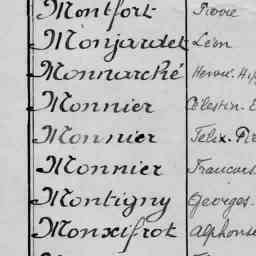 Montfort Pierre
Monjardet Léon
Monnarché Henri. Hip
Monnier Célestin. E
Monnier Félix. Pie
Monnier Francois.
Montigny Georges.
Monxifrot Alphonse